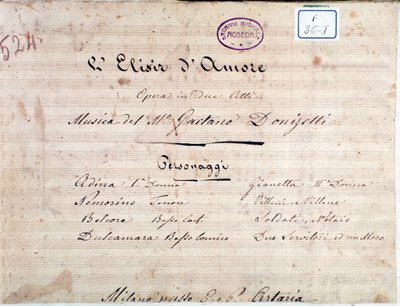 524.
ARCHIVIO MUSICALE
NOSEDA
F
26-I
L'Elisir d'Amore
Opera in due Atti
Musica del M.o Gaetano Donizetti
Personaggi
Adina 1.a Donna
Gianetta II.a Donna
Nemorino Tenore
Villani e Villane
Belcore Basso Cant.
Soldati, Notaio
Dulcamara Basso Comico
Due Servitori ed un Moro
Milano presso F. e P. Artaria